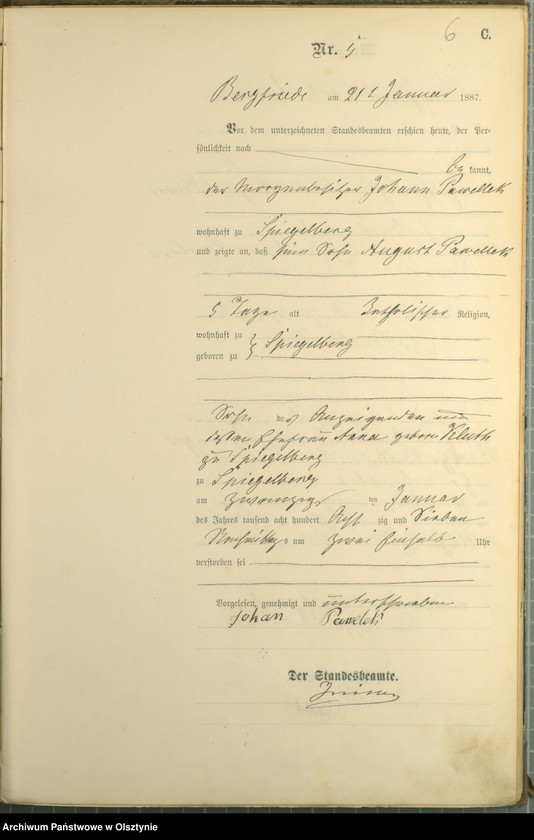 6 C.
Nr. 5
Bergfriede am 21t Januar 1887.
Vor dem unterzeichneten Standesbeamten erschien heute, der Per-
sönlichkeit nach
be kannt,
der Morgenbesitzer Johann Pawellek
wohnhaft zu Spiegelberg
und zeigte an, daß sein Sohn August Pawellek
5 Tage alt Katholischer Religion,
wohnhaft zu
geboren zu Spiegelberg
Sohn des Anzeigenden und
dessen Ehefrau Anna geborn Kluth
zu Spiegelberg
zu Spiegelberg
am zwanzigs ten Januar
des Jahres tausend acht hundert Acht zig und Sieben
Nachmittags um zwei einhalb Uhr
verstorben sei
Vorgelesen, genehmigt und unterschrieben
Johan Pawelek
Der Standesbeamte.
Archiwum Państwowe w Olsztynie